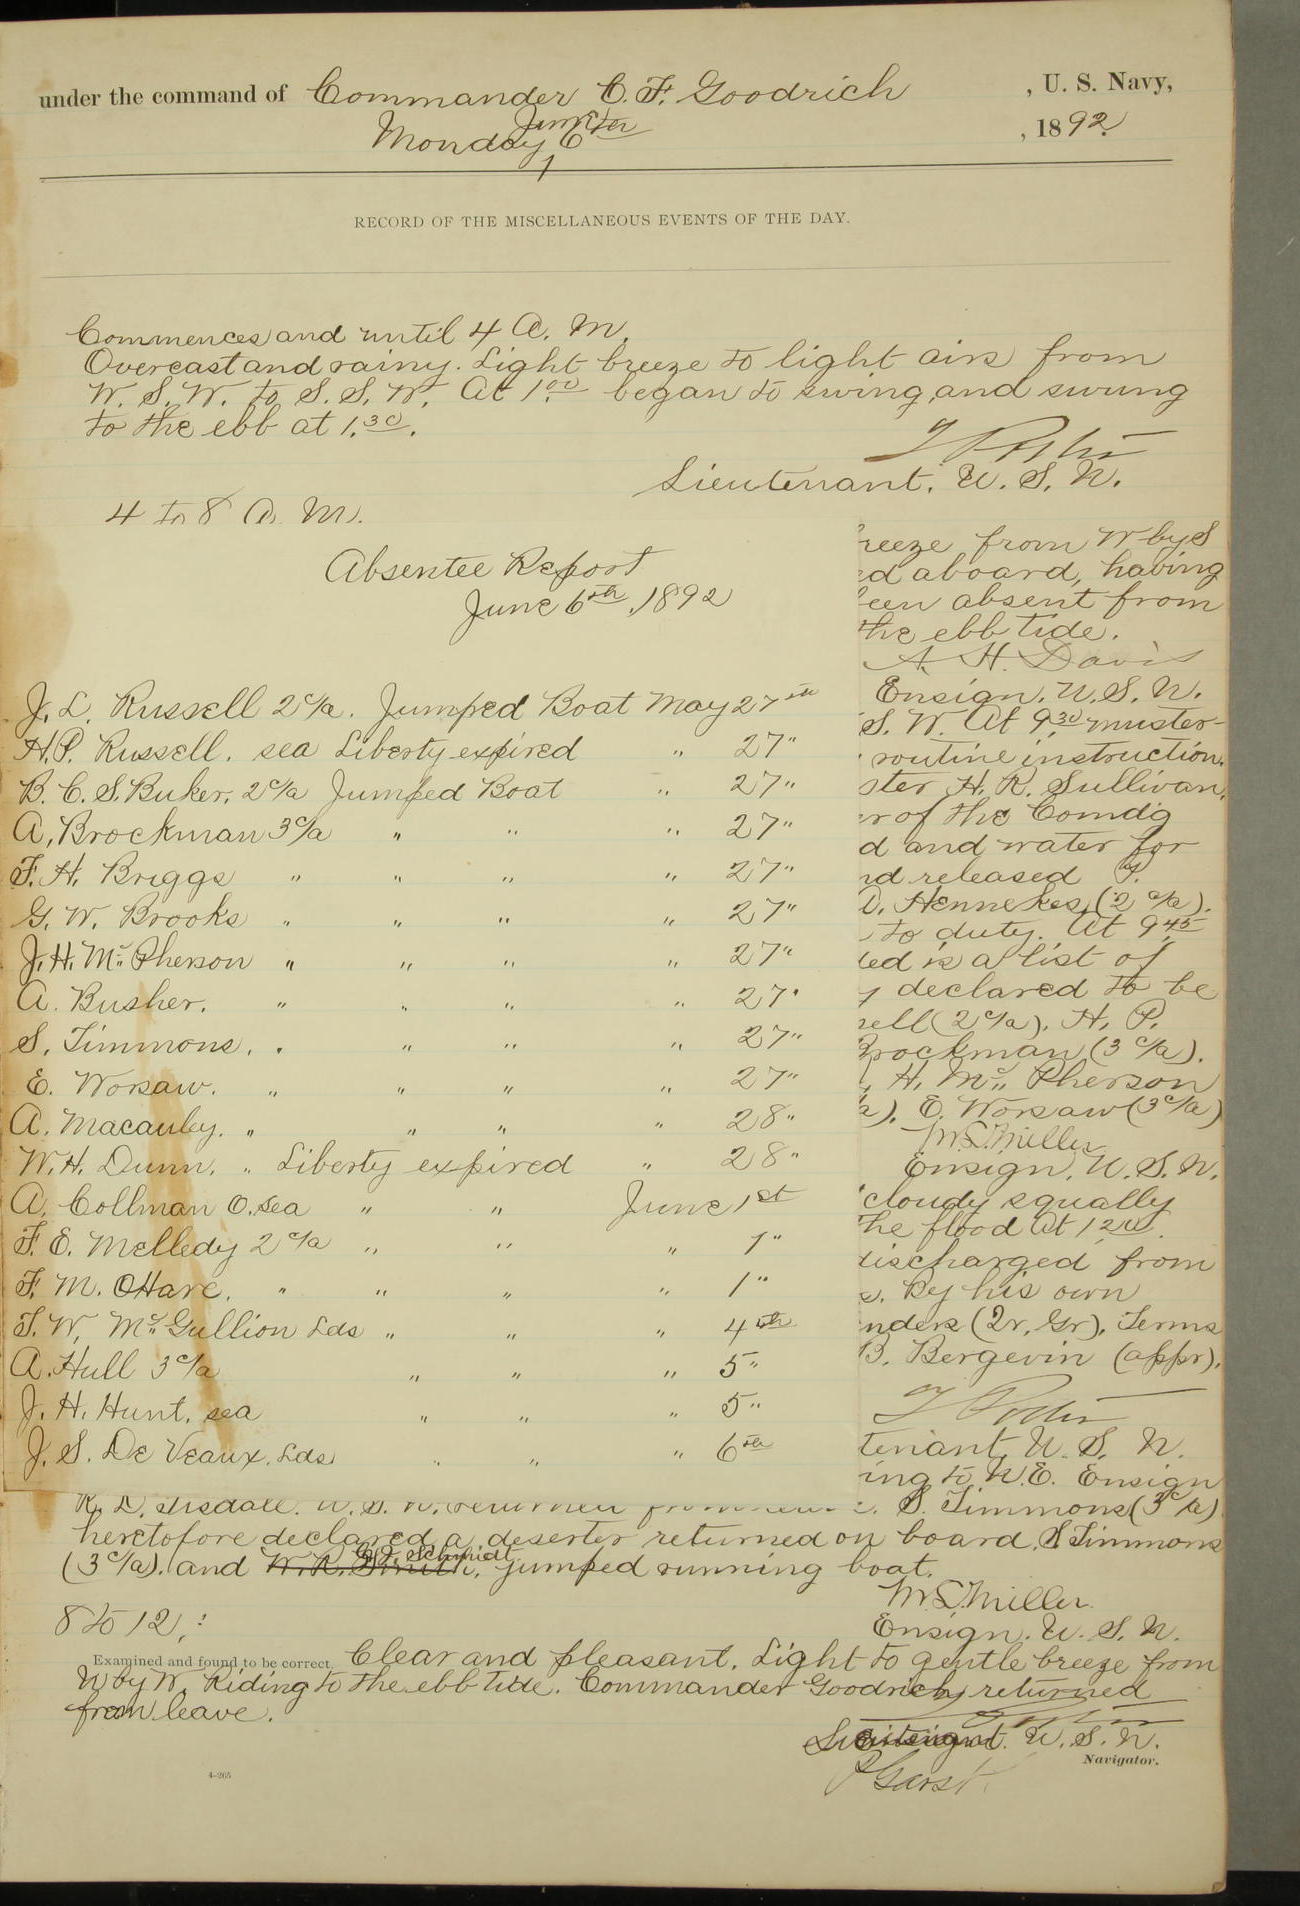 under the command of Commander C. F. Goodrich , U. S. Navy,
Monday June 6th , 1892.
RECORD OF THE MISCELLANEOUS EVENTS OF THE DAY.
Commences and until 4 A. M.
Overcast and rainy. Light breeze to light airs from
W. S. W. to S. S. W. At 1.00 began to swing, and swung
to the ebb at 1.30.
Lieutenant. U. S. N.
4 to 8 A. M.
Absentee Report
June 6th, 1892
J. L. Russell 2 c/a. Jumped Boat May 27th
H. P. Russell. sea Liberty expired " 27"
B. C. S. Buker. 2 c/a Jumped Boat " 27"
A. Brockman 3 c/a " " " 27"
F. H. Briggs " " " " 27"
G. W. Brooks " " " " 27"
J. H. McPherson " " " " 27"
A. Busher. " " " " 27"
S. Timmons. " " " " 27"
E. Worsaw. " " " " 27"
A. Macauley. " " " " 28"
W. H. Dunn. " Liberty expired " 28"
A. Collman O. sea " " June 1st
F. E. Melledy 2 c/a " " " 1"
F. M. OHare. " " " " 1"
T. W. McGullion Lds " " " 4th
A. Hull 3 c/a " " " 5"
J. H. Hunt. sea " " " 5"
J. S. De Veaux. Lds " " " 6th
reeze from W by S
ed aboard, having
een absent from
the ebb tide.
A. H. Davis
Ensign. U. S. N.
S. W. At 9.30 muster-
routine instruction.
ster H. R. Sullivan,
er of the Comdg
d and water for
nd released P.
D. Hennekes, (2 c/a).
to duty. At 9.45
ed is a list of
y declared to be
sell (2 c/a). H. P.
Brockman (3 c/a).
H. McPherson
a). E. Worsaw (3 c/a)
M. L. Miller
Ensign. U. S. N.
cloudy squally
he flood at 12
discharged from
s. By his own
nders (2r. Gr). Terms
B. Bergevin (appr).
tenant, U. S. N.
ing to N. E. Ensign
R. L. Tisdale. U. S. N. returned from S. Timmons (3 c/a)
heretofore declared a deserter returned on board. S. Timmons
(3 c/a). and W. R. Smith, Schmidt jumped running boat.
M. L. Miller.
Ensign. U. S. N.
8 to 12.:
Examined and found to be correct. Clear and pleasant. Light to gentle breeze from
N by W. Riding to the ebb tide. Commander Goodrich returned
from leave.
Lieutenant. U. S. N.
Navigator.
P Garst
4—265